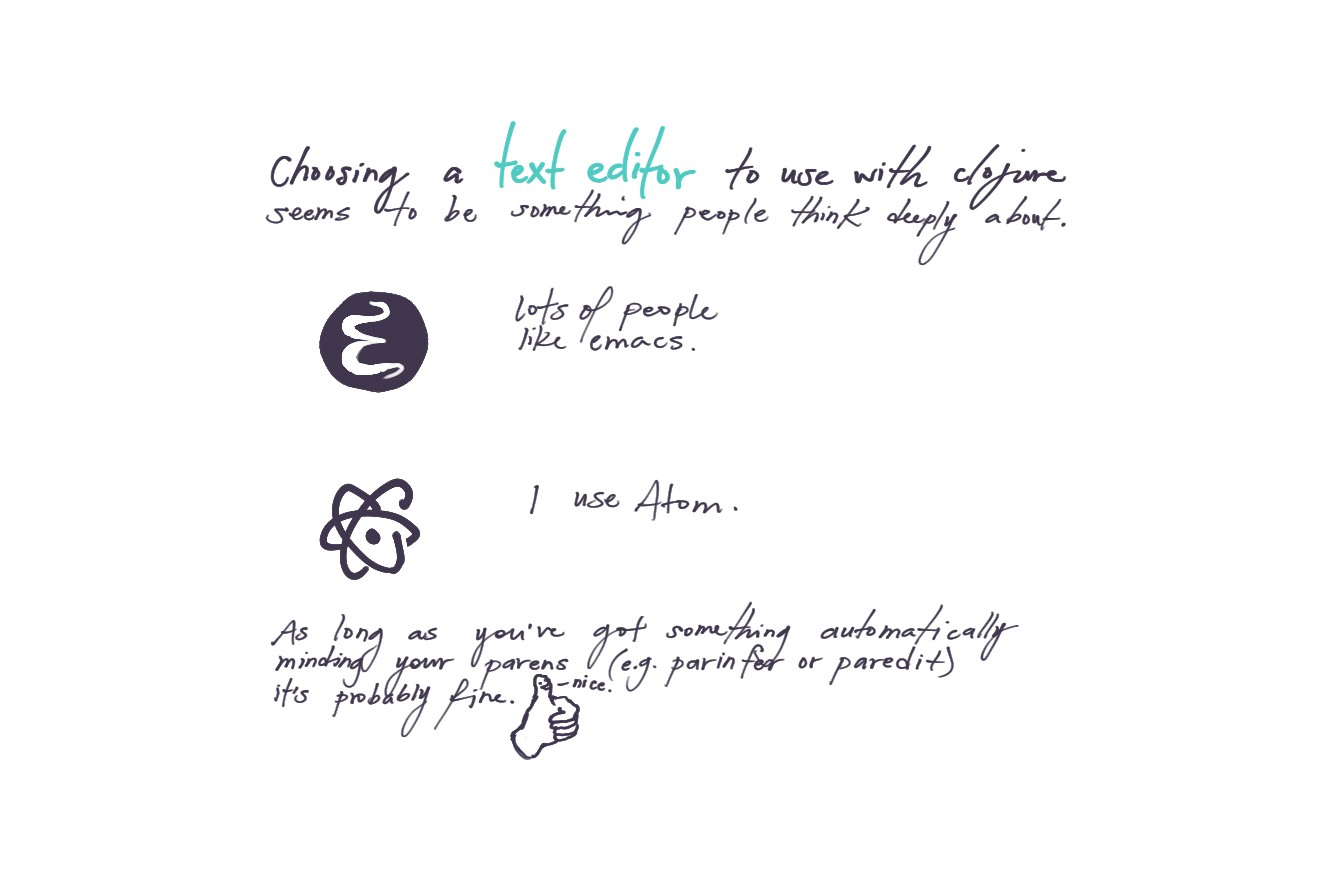 Choosing a text editor to use with clojure
seems to be something people think deeply about.
lots of people
like emacs.
I use Atom.
As long as you've got something automatically
minding your parens (e.g. parinfer or paredit)
it's probably fine.
- nice.